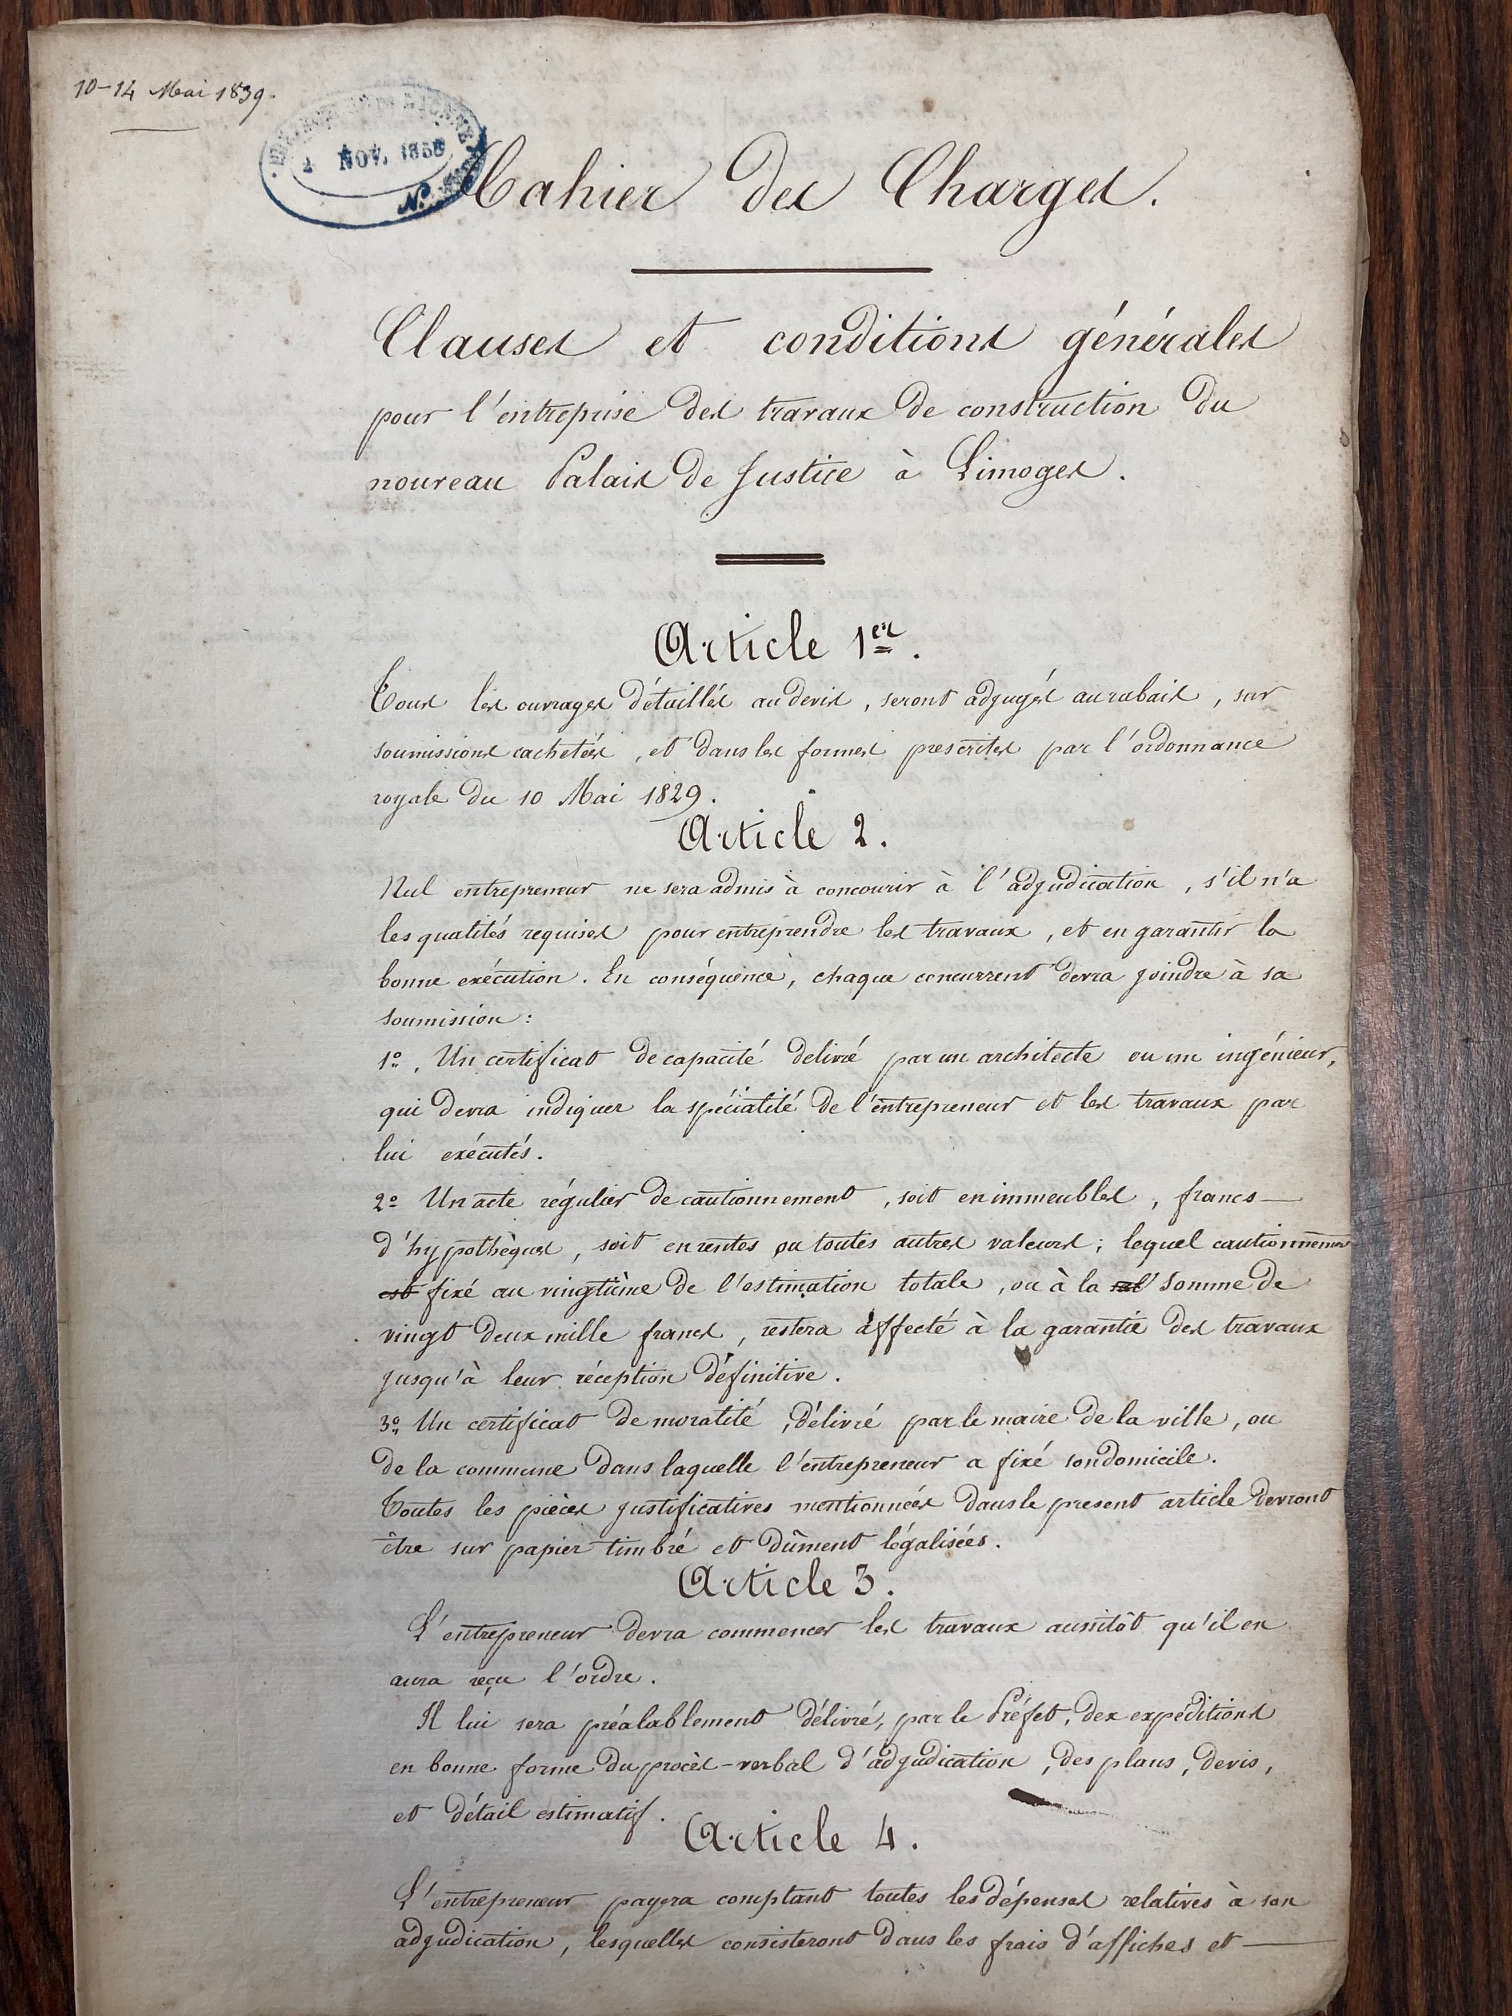 10-14 Mai 1839.
2 NOV. 1838
N.
Cahier des Charges.
Clauses et conditions générales
pour l'entreprise des travaux de construction du
nouveau Palais de Justice à Limoges.
Article 1er.
Tous les ouvrages détaillés au devis, seront adjugés au rabais, sur
soumissions cachetées, et dans les formes prescrites par l'ordonnance
royale du 10 Mai 1829.
Article 2.
Nul entrepreneur ne sera admis à concourir à l'adjudication, s'il n'a
les qualités requises pour entreprendre les travaux, et en garantir la
bonne exécution. En conséquence, chaque concurrent devra joindre à sa
soumission:
1º. Un certificat de capacité delivré par un architecte ou un ingénieur,
qui devra indiquer la spécialité de l'entrepreneur et les travaux par
lui exécutés.
2º Un acte régulier de cautionnement, soit en immeubles, francs
d'hypothèques, soit en rentes ou toutes autres valeurs; lequel cautionnement
est fixé au vingtième de l'estimation totale, ou à la somme de
vingt deux mille francs, restera affecté à la garantie des travaux
jusqu'à leur réception définitive.
3º. Un certificat de moralité, délivré par le maire de la ville, ou
de la commune dans laquelle l'entrepreneur a fixé son domicile.
Toutes les pièces justificatives mentionnées dans le present article devront
être sur papier timbré et dûment légalisées.
Article 3.
L'entrepreneur devra commencer les travaux aussitôt qu'il en
aura reçu l'ordre.
Il lui sera préalablement délivré, par le Préfet, des expéditions
en bonne forme du procès-verbal d'adjudication, des plans, devis,
et détail estimatif.
Article 4.
L'entrepreneur payera comptant toutes les dépenses relatives à son
adjudication, lesquelles consisteront dans les frais d'affiches et